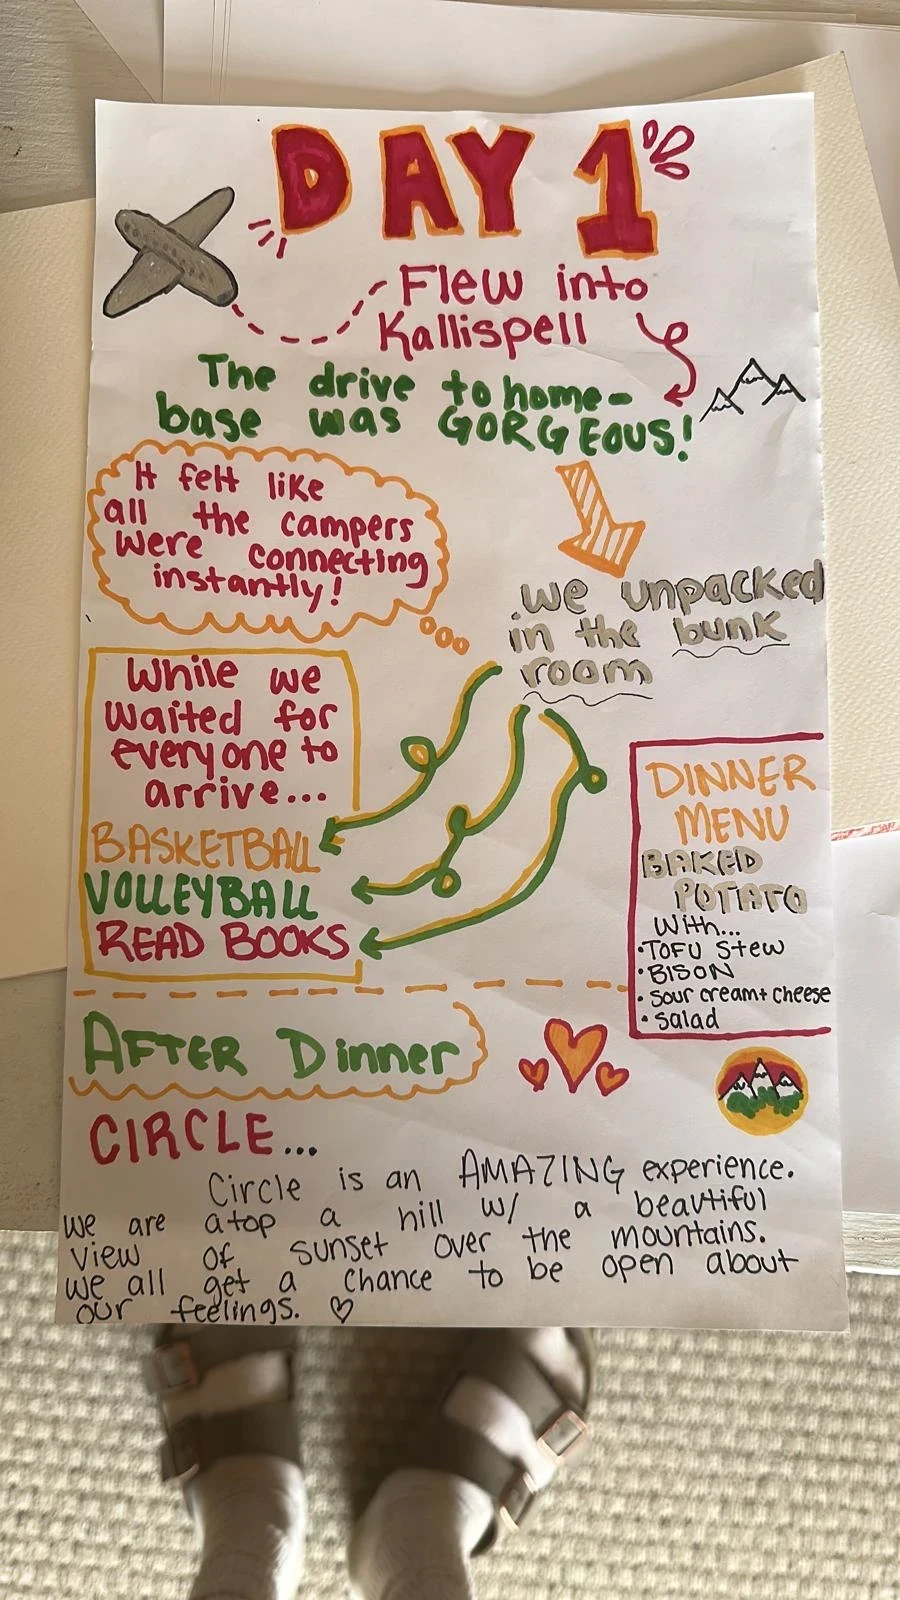 DAY 1
Flew into
Kallispell
The drive to home-
base was GORGEOUS!
It felt like
all the campers
were connecting
instantly!
we unpacked
in the bunk
room
While we
waited for
everyone to
arrive...
BASKETBALL
VOLLEYBALL
READ BOOKS
DINNER
MENU
BAKED
POTATO
With...
•TOFU Stew
•BISON
•sour cream+ cheese
•salad
AFTER Dinner
CIRCLE...
Circle is an AMAZING experience.
we are atop a hill w/ a beautiful
view of sunset over the mountains.
we all get a chance to be open about
our feelings. ♡